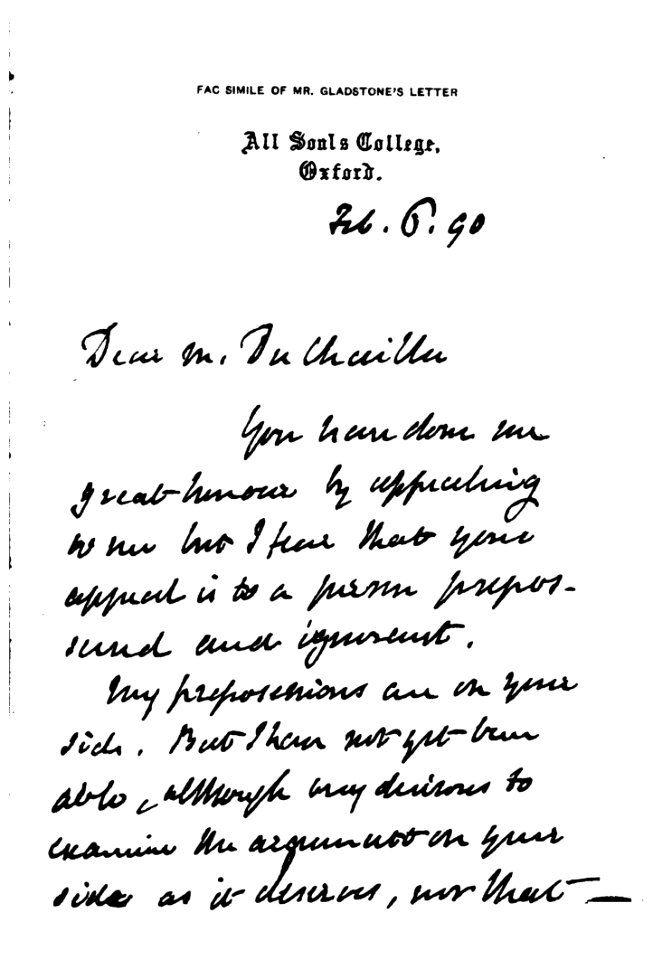 FAC SIMILE OF MR. GLADSTONE'S LETTER
All Souls College,
Oxford.
Feb. 6. 90
Dear M. Du Chaillu
You have done me
great honour by appealing
to me but I fear that your
appeal is to a person prepos-
sessed and ignorant.
My prepossessions are on your
side. But I have not yet been
able, although very desirous to
examine the argument on your
side as it deserves, nor that